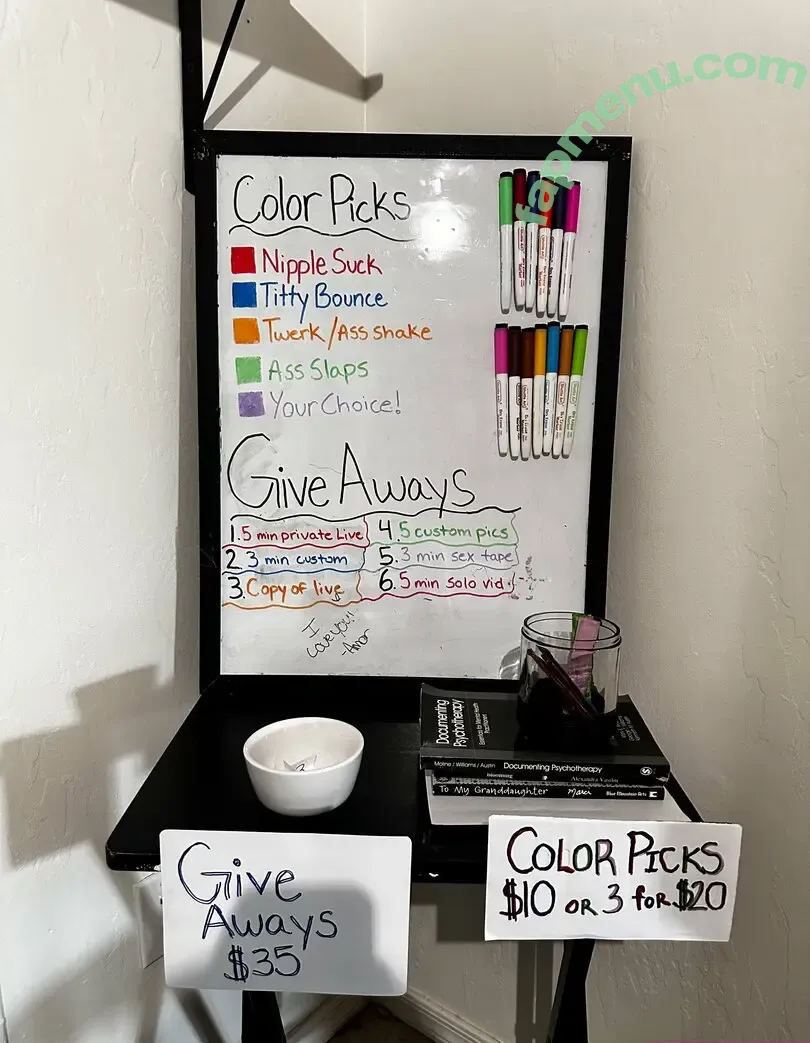 fapmenu.com
Color Picks
Nipple Suck
Titty Bounce
Twerk/Ass shake
Ass Slaps
Your Choice!
Give Aways
1. 5 min private Live
4. 5 custom pics
2. 3 min custom
5. 3 min sex tape
3. Copy of live
6. 5 min solo vid.
I
Love you!!
Documenting
Psychotherapy
Essentials for Mental Health
Practitioners
Moline / Williams / Austin Documenting Psychotherapy
To My Granddaughter
Blue Mountain Arts
Give
Aways
$35
COLOR PICKS
$10 OR 3 for $20